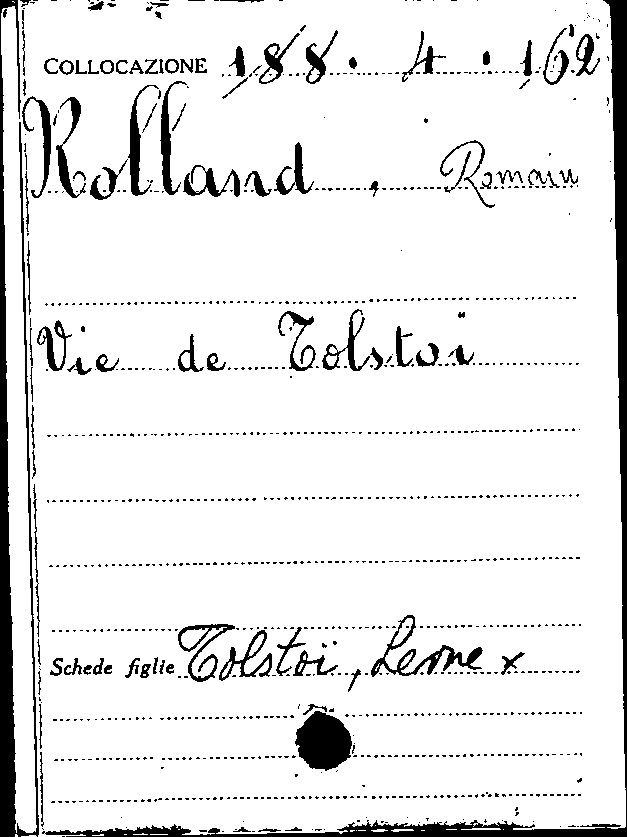 COLLOCAZIONE 188. 4. 162
Rolland, Romain
Vie de Tolstoï
Schede figlie Tolstoï, Leone x